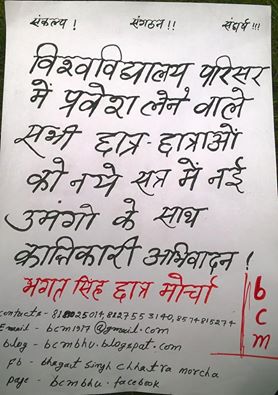 संकल्प ! संगठन !! संघर्ष !!!
विश्वविद्यालय परिसर
में प्रवेश लेने वाले
सभी छात्र-छात्राओं
को नये सत्र में नई
उमंगो के साथ
क्रान्तिकारी अभिवादन !
भगत सिंह छात्र मोर्चा
bcm
contacts-
Email - bcm1917@gmail.com
blog - bcmbhu.blogspot.com
fb - bhagat singh chhatra morcha
page - bcmbhu.facebook